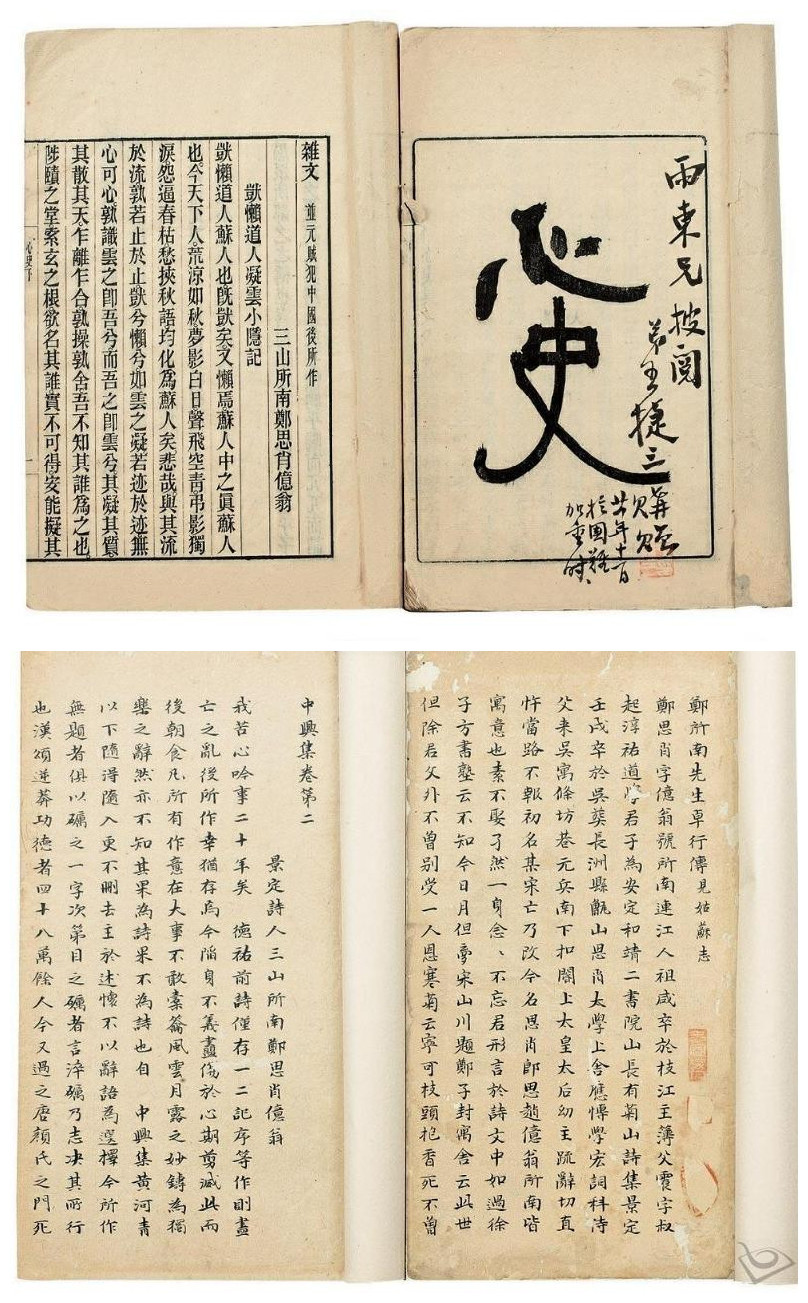 雨東兄披閱
弟王捷三
購贈
廿年十一月
於國難
加重時
心史
雜文 並元賊犯中國後所作
三山所南鄭思肖億翁
獃懶道人凝雲小隱記
獃懶道人蘇人也旣獃矣又懶焉蘇人中之眞蘇人
也今天下人荒涼如秋夢影白日聲飛空青弔影獨
淚怨逼春枯愁挾秋語均化爲蘇人矣悲哉與其流
於流孰若止於止獃兮懶兮如雲之凝若迹於迹無
心可心孰識雲之卽吾兮而吾之卽雲兮其凝其質
其散其天乍離乍合孰操孰舍吾不知其誰爲之也
陟賾之堂索玄之根欲名其誰實不可得安能擬其
心史下
一
鄭所南先生卓行傳見姑蘇志
鄭思肖字億翁號所南連江人祖咸卒於枝江主簿父震字叔
起淳祐道學君子為安定和靖二書院山長有菊山詩集景定
壬戌卒於吳葬長洲縣甑山思肖太學上舍應博學宏詞科侍
父来吳寓條坊巷元兵南下扣閽上太皇太后幼主疏辭切直
忤當路不報初名某宋亡乃改今名思肖即思趙億翁所南皆
寓意也素不娶孑然一身念、不忘君形言於詩文中如過徐
子方書塾云不知今日月但夢宋山川題鄭子封寓舍云此世
但除君父外不曾别受一人恩寒菊云寧可枝頭抱香死不曾
中興集卷第二
景定詩人三山所南鄭思肖億翁
我苦心吟事二十年矣 德祐前詩僅存一二記序等作則盡
亡之亂後所作幸猶存焉今陷身不義盡傷於心期剪滅此而
後朝食凡所有作意在大事不敢橐籥風雲月露之妙鑄為獨
樂之辭然亦不知其果為詩果不為詩也自 中興集黃河青
以下隨得隨入更不刪去主於述懷不以辭語為選擇今所作
無題者俱以礪之一字次第目之礪者言淬礪乃志决其所行
也漢頌逆莽功德者四十八萬餘人今又過之唐顏氏之門死